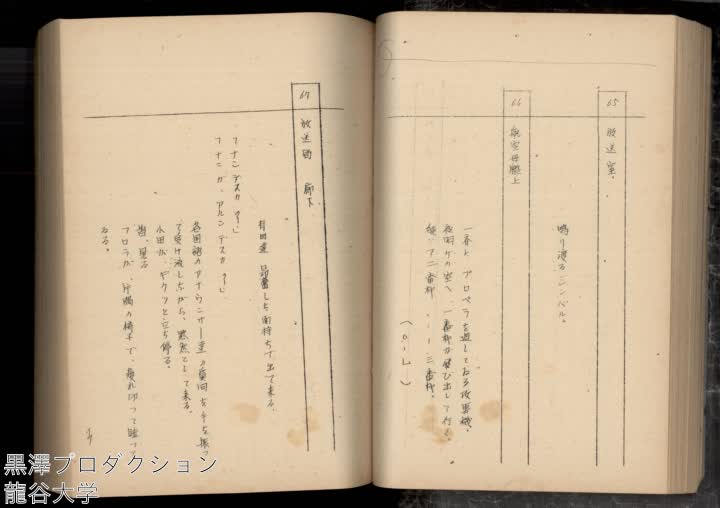 65
放送室。
鳴り渡るニンベル。
66
航空母艦上
一斉に プロペラを廻している攻撃機。
夜明けの空へ、一番機が飛び出して行く。
続いて二番機……三番機。
(O・L)
67
放送局 廊下
有田達 昂奮した面持ちで出て来る。
「ナンデスカ
「ナニガ、アルンデスカ
各国語のアナウンサー達の質問を手を振っ
て受け流しながら、黙然として来る。
小田が、ギクッと立ち停る。
皆、見る
フロラが、片隅の椅子で、疲れ切って眠って
いる。
黒澤プロダクション
龍谷大学